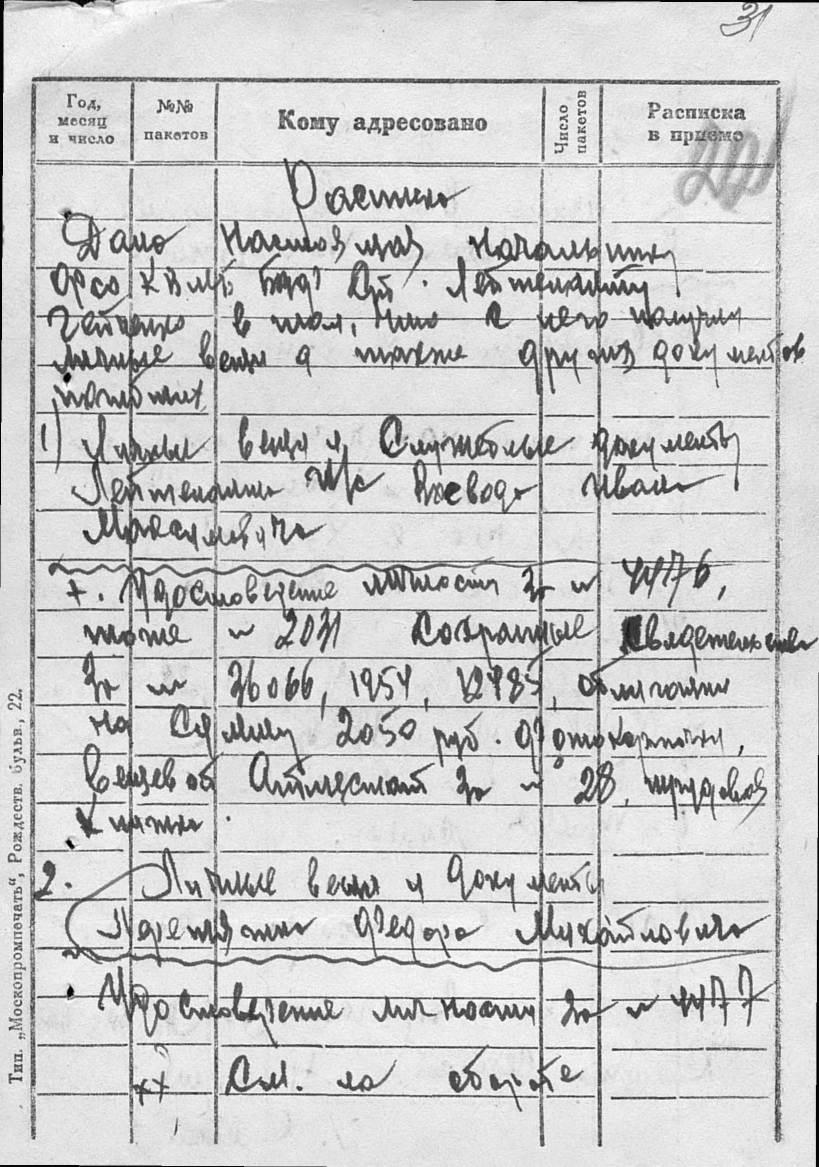 31
Год, месяц и число
№№ пакетов
Кому адресовано
Число пакетов
Расписка в приеме
Расписка
Дано настоящая начальнику
Лейтенанту
в том, что с него получил
личные вещи а также других документов
погибших
1) Личные вещи и Служебные документы
Лейтенанта Воевода Ивана
Максимовича
+. Удостоверение личности За № 4476,
тоже № 2031 Сохранные Свидетельства
За № 36066, 1954, облигации
на Сумму 2050 руб. фотокарточки,
Вещевой Аттестат За № 28, трудовая
Книжка.
2. Личные вещи и документы
Федора Михайловича
Удостоверение личности За № 4477
хх См. на обороте
Тип. „Москопромпечать“, Рождеств. бульв., 22.